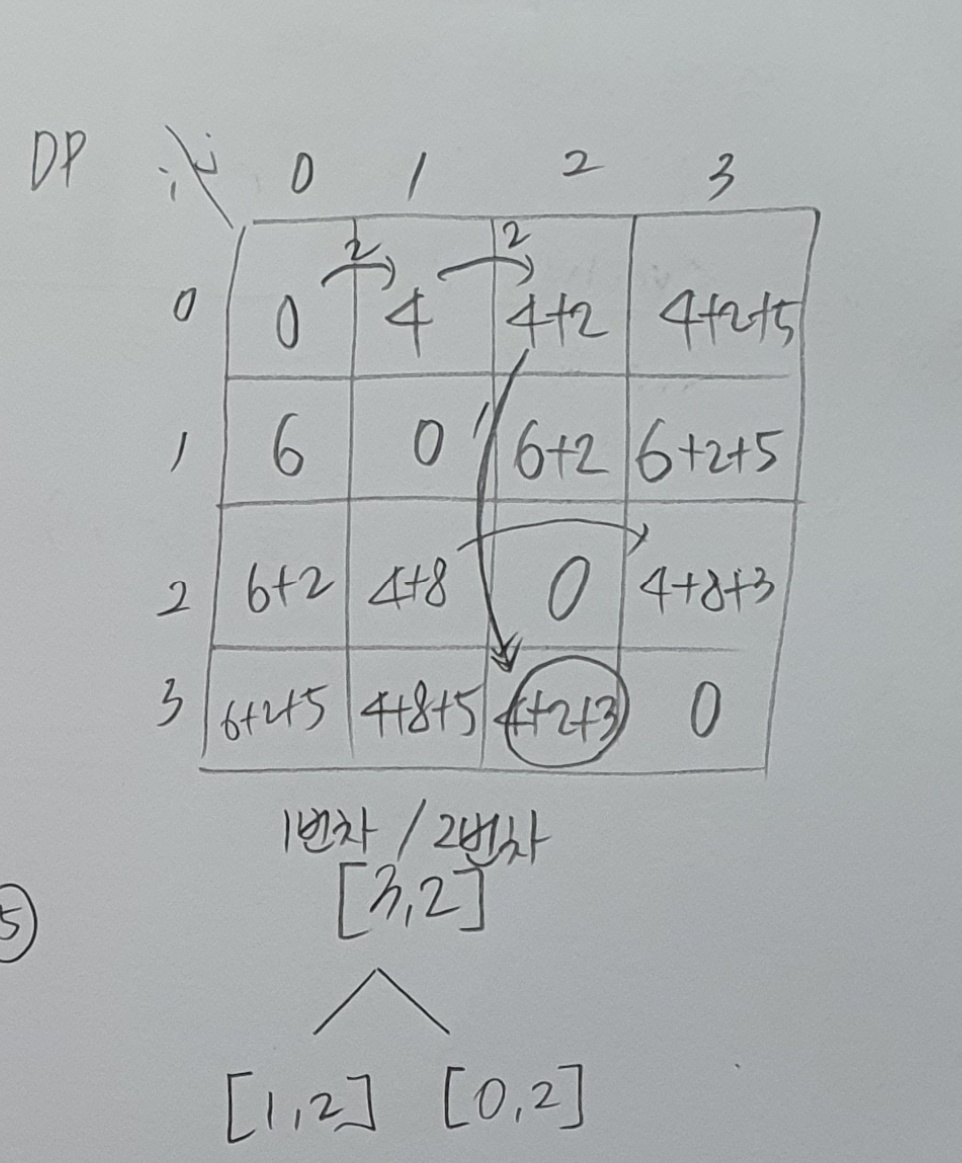 DP i\j 0 1 2 3
2 2
0 0 4 4+2 4+2+5
1 6 0 6+2 6+2+5
2 6+2 4+8 0 4+8+3
3 6+2+5 4+8+5 4+2+3 0
1번차 / 2번차
[3,2]
5
[1,2] [0,2]